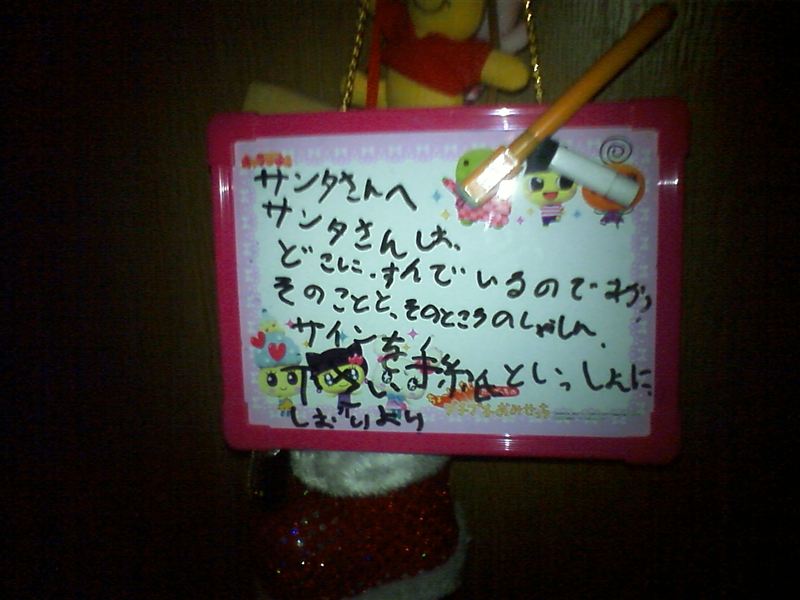 サンタさんへ
サンタさんは、
どこに、すんでいるのですか。
そのことと、そのところのしゃしんへ、
サインをく
下さい、手紙といっしょに。
しおりより